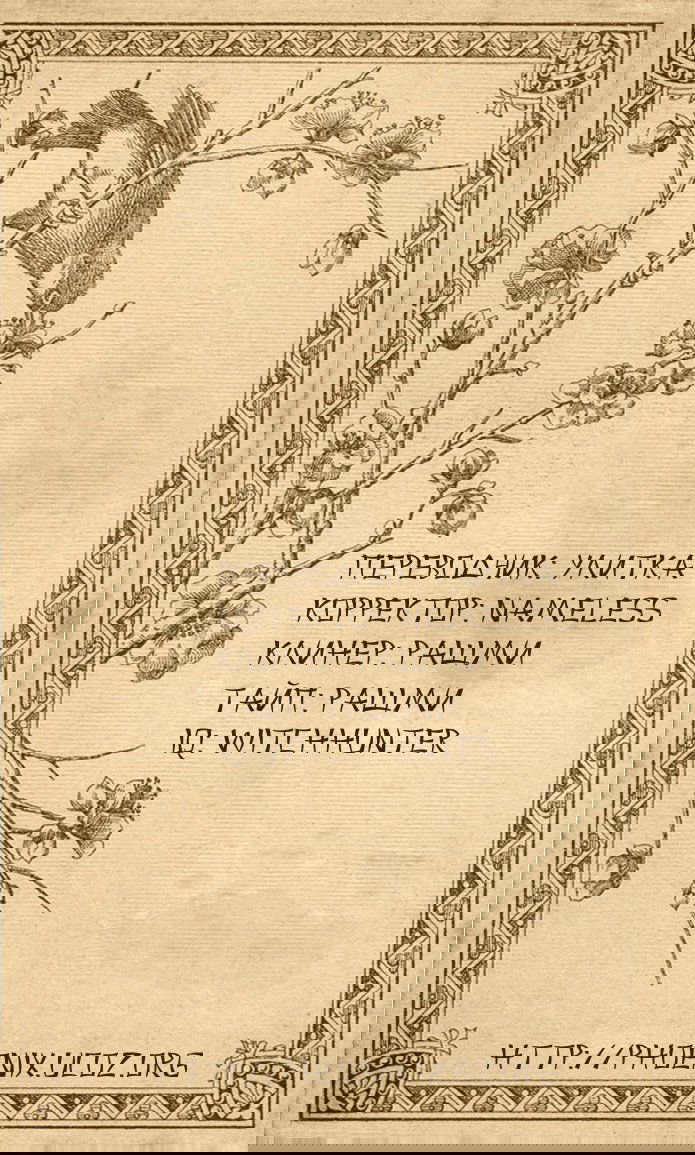 ПЕРЕВОДЧИК: УЛИТКА
КОРРЕКТОР: NAMELESS
КЛИНЕР: РАШМИ
ТАЙП: РАШМИ
IQ: WITCHHUNTER
HTTP://PHOENIX.UCOZ.ORG